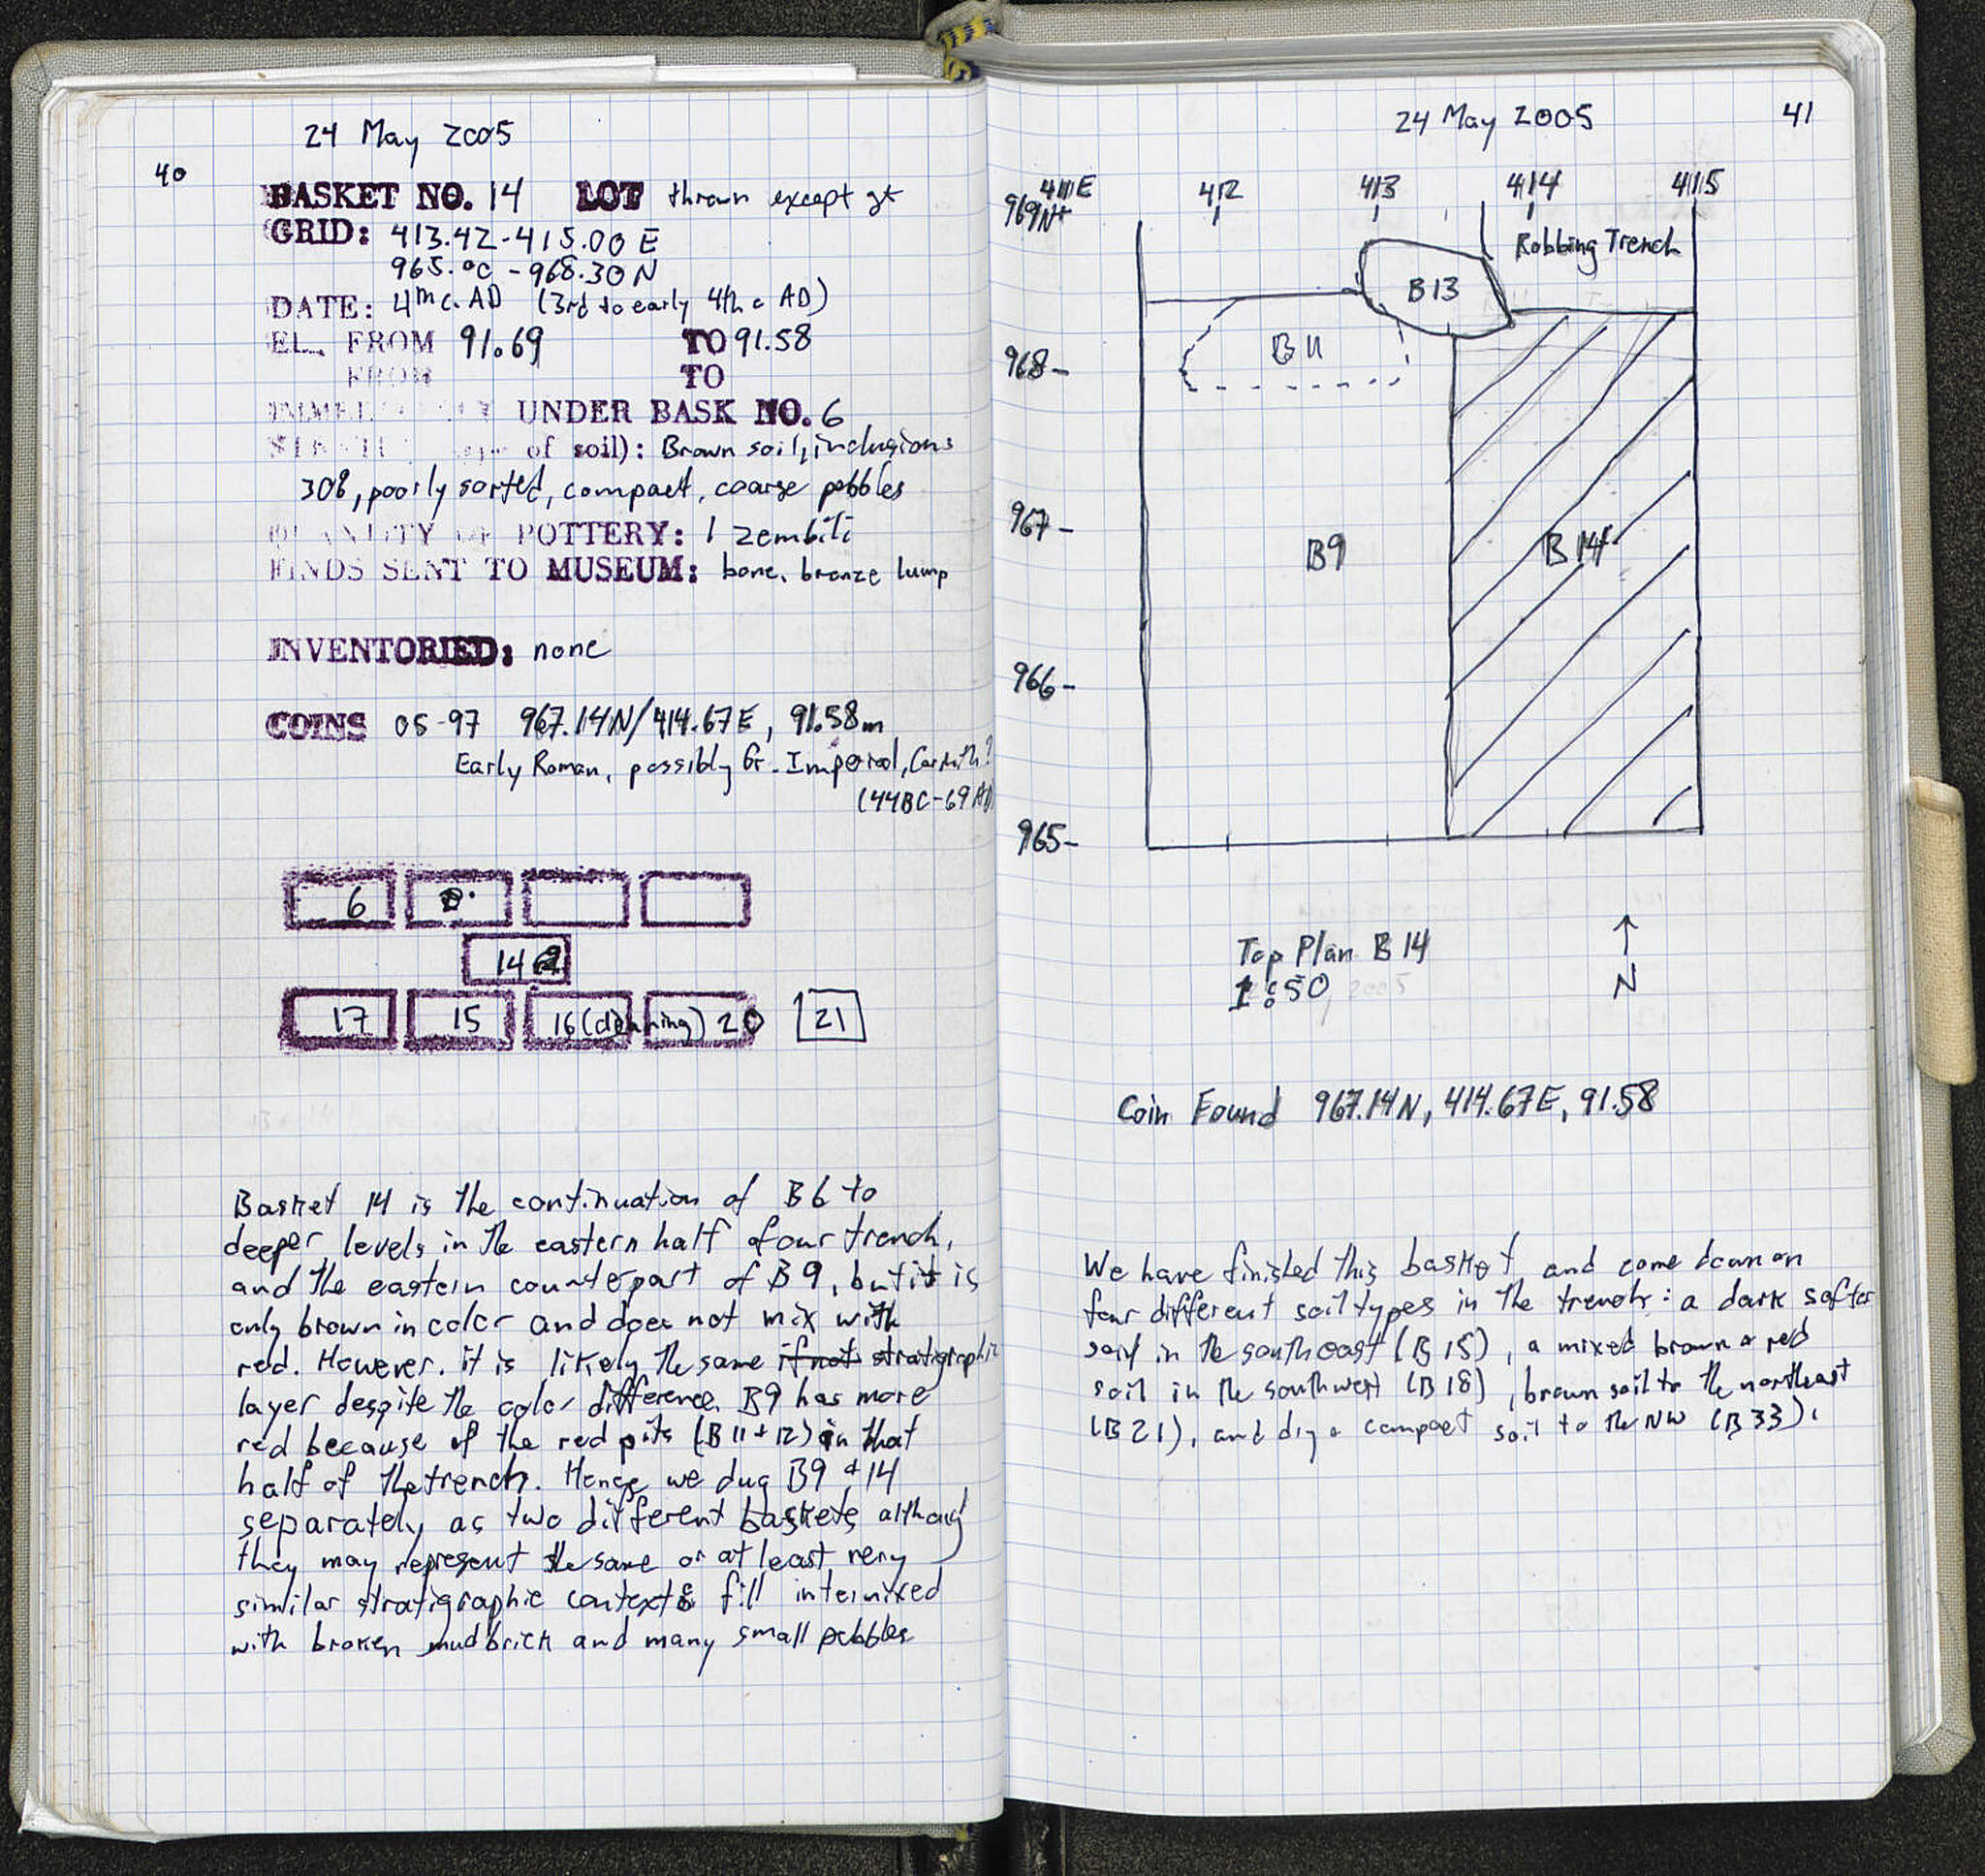 24 May 2005
40
BASKET NO. 14 LOT thrown except gt
GRID: 413.42-415.00 E
965.00 - 968.30 N
DATE: 4th c. AD (3rd to early 4th c AD)
EL. FROM 91.69 TO 91.58
FROM TO
UNDER BASK NO. 6
of soil): Brown soil, inclusions
30%, poorly sorted, compact, coarse pebbles
QUANTITY OF POTTERY: 1 zembili
FINDS SENT TO MUSEUM: bone, bronze lump
INVENTORIED: none
COINS 05-97 967.14N/414.67E, 91.58m
Early Roman, possibly Gr. Imperial, Corinth?
(44BC-69AD)
6
14
17 15 16 (cleaning) 20 21
Basket 14 is the continuation of B6 to
deeper levels in the eastern half of our trench,
and the eastern counterpart of B9, but it is
only brown in color and does not mix with
red. However, it is likely the same if not stratigraphic
layer despite the color difference. B9 has more
red because of the red pits (B11+12) in that
half of the trench. Hence we dug B9 + 14
separately as two different baskets although
they may represent the same or at least very
similar stratigraphic contexts fill intermixed
with broken mudbrick and many small pebbles
24 May 2005
41
411E 412 413 414 415
969N
Robbing Trench
B13
B11
968-
967-
B9
B14
966-
965-
Top Plan B14
1:50
N
Coin Found 967.14N, 414.67E, 91.58
We have finished this basket and come down on
four different soil types in the trench: a dark softer
soil in the southeast (B15), a mixed brown + red
soil in the southwest (B18), brown soil to the northeast
(B21), and dry compact soil to the NW (B33).